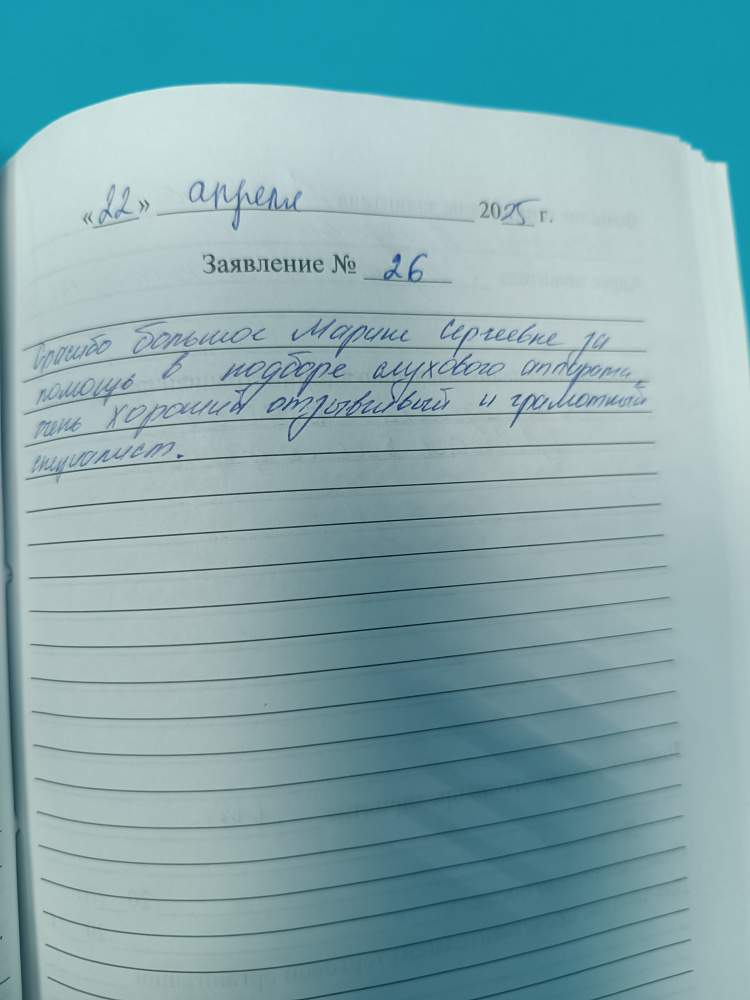 «22» апреля 2025 г.
Заявление № 26
Спасибо большое Марине Сергеевне за
помощь в подборе слухового аппарата,
очень хороший отзывчивый и грамотный
специалист.